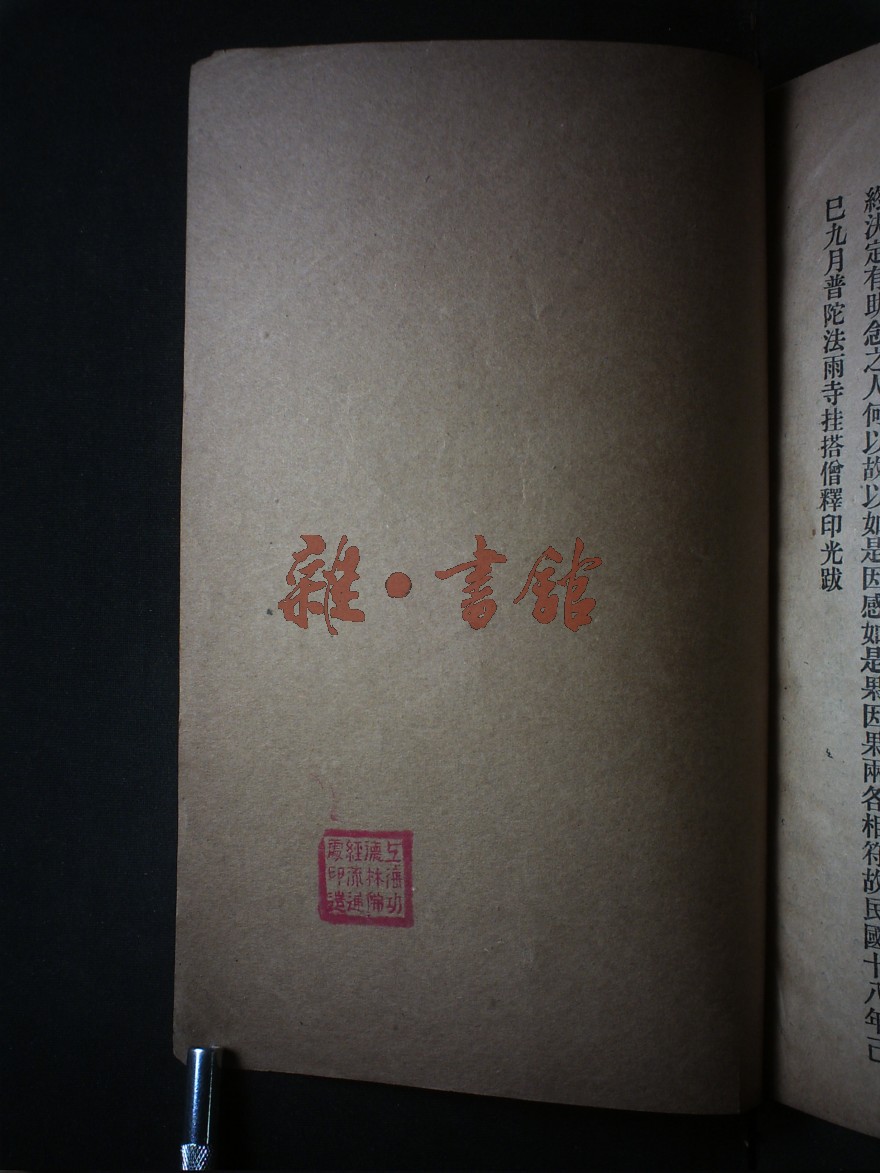 經決定有助念之人何以故以如是因感如是果因果兩各相符故民國十八年己
巳九月普陀法雨寺挂搭僧釋印光跋
雜·書館
上海功
德林佛
經流通
處印造